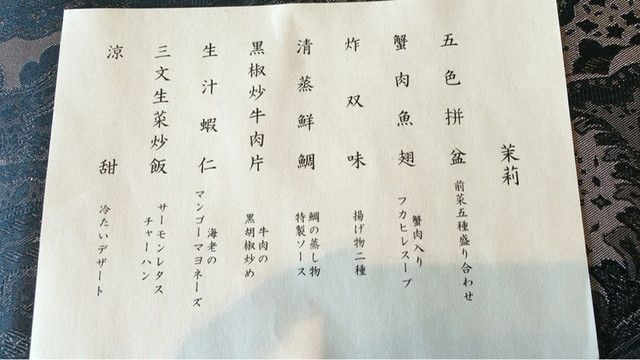 茉莉
五色拼盆
前菜五種盛り合わせ
蟹肉魚翅
蟹肉入り
フカヒレスープ
炸双味
揚げ物二種
清蒸鮮鯛
鯛の蒸し物
特製ソース
黒椒炒牛肉片
牛肉の
黒胡椒炒め
生汁蝦仁
海老の
マンゴーマヨネーズ
三文生菜炒飯
サーモンレタス
チャーハン
涼甜
冷たいデザート